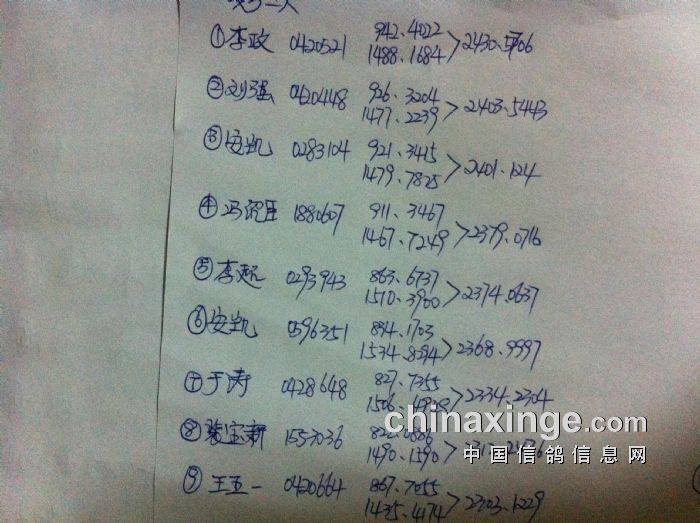 ①李政 0420521 942.4022
1488.1684 >2430.5706
②刘强 0420448 926.3204
1477.2239 >2403.5443
③安凯 0283104 921.3415
1479.7825 >2401.124
④冯 1880607 911.3467
1467.7249 >2379.0716
⑤李超 0293943 863.6737
1510.3900 >2374.0637
⑥安凯 0596351 834.1703
1534.8294 >2368.9997
⑦于涛 0428648 827.7355
1506. >2334.2304
⑧张宝新 1557036
1490.1590
⑨王五一 0420664 867.7055
1435.4174 >2303.1229
chinaxinge.com
中国信鸽信息网